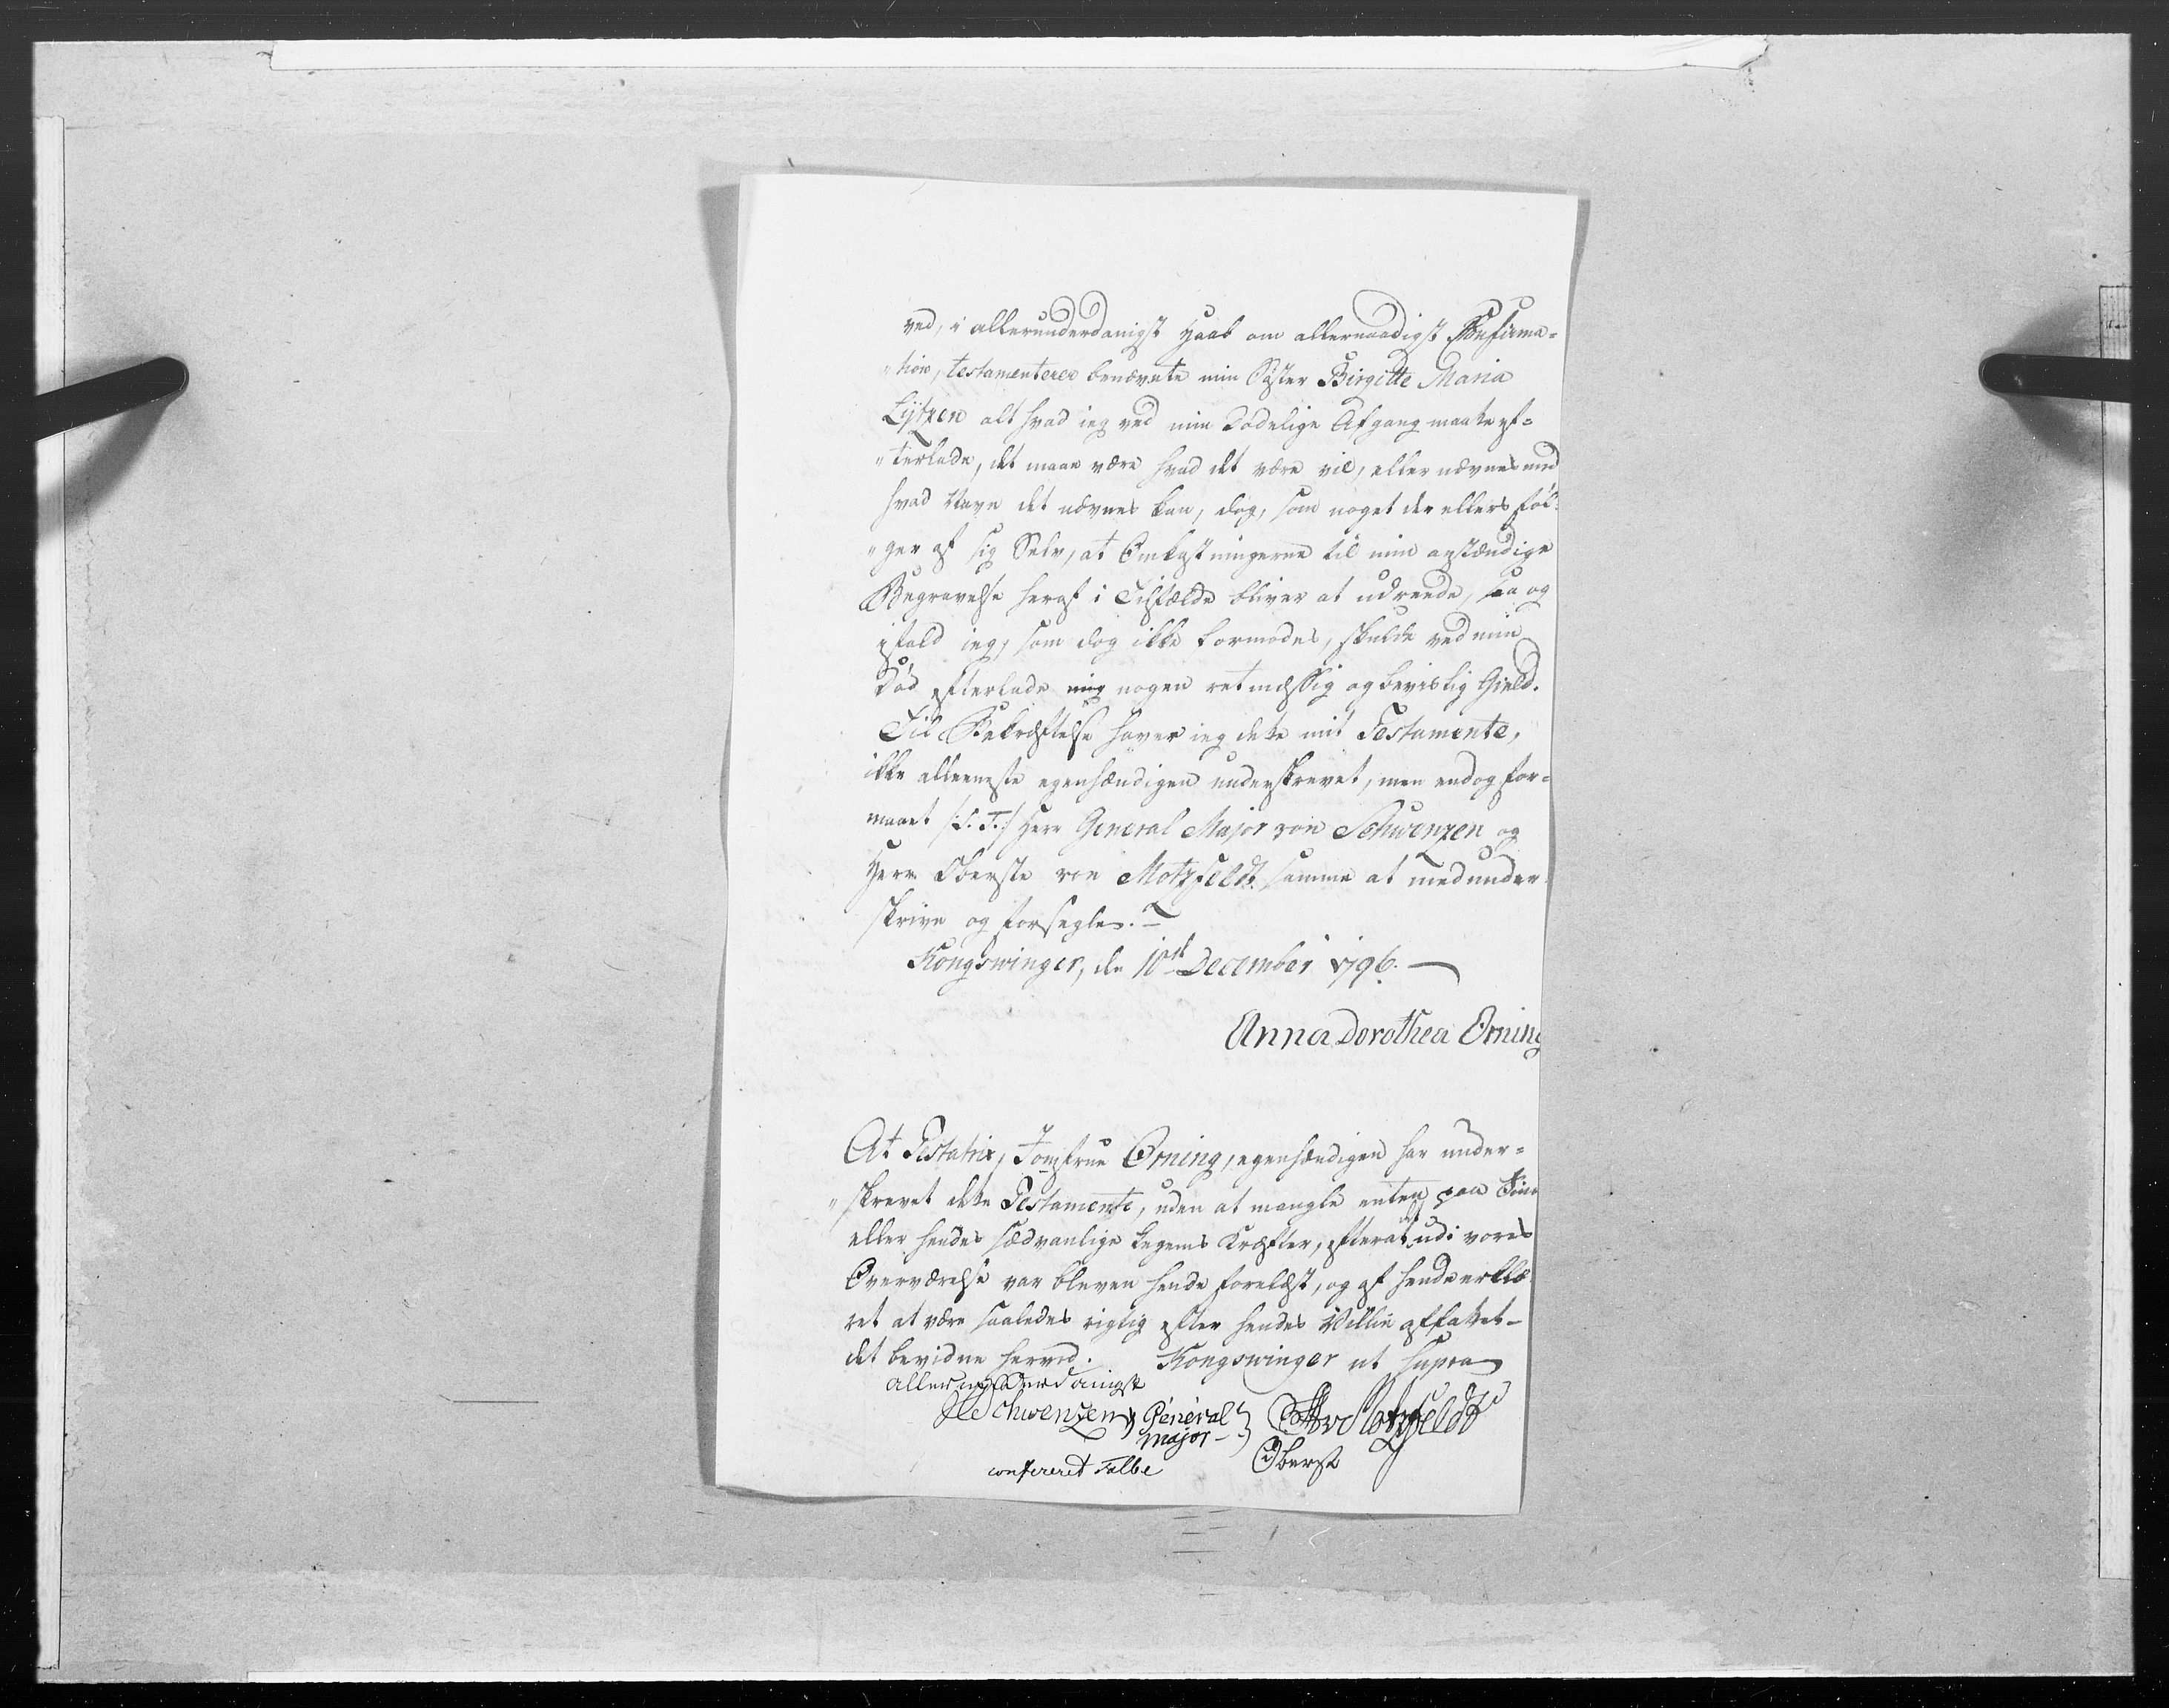 ved, i allerunderdanigst Haab om allernaadigst Confirma=
"tion, testamenterer benævnte min Søster Birgitte Maria
Lÿtzen alt hvad ieg ved min Dødelige Afgang maatte ef=
"terlade, det maae være hvad det være vil, eller nævnes med
hvad Navn det nævnes kan, dog, som noget der ellers føl=
"ger af sig Selv, at Omkostningerne til min anstændige
Begravelse heraf i Tilfælde bliver at udreede, saa og
ifald ieg, som dog ikke formodes, skulde ved min
Død efterlade mig nogen retmæssig og beviislig Gield.
Til Bekræftelse haver ieg dette mit Testamente,
ikke alleeneste egenhændigen underskrevet, men endog for=
maaet /:S. T:/ Herr General Major von Schwenzen og
Herr Oberste von Motzfeldt samme at medunder=
skrive og forsegle.
Kongswinger, de 10de December 1796.
Anna Dorothea Orning
At Testatrix, Jomfrue Orning, egenhændigen har under=
"skrevet dette Testamente, uden at mangle enten paa
eller hendes sædvanlige Legems Kræfter, efterat det udi vores
Overværelse var bleven hende forelæst, og af hende erklæ
ret at være saaledes rigtig efter hendes Villie affattet-
det bevidne herved. Kongswinger ut supra
allerunderdanigst
Schwenzen General Motzfeldt
Major
confereret Falbe Oberst